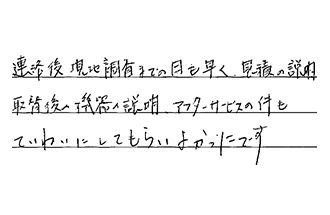 連絡後、現地調査までの日も早く、見積の説明
取替後の機器の説明、アフターサービスの件も
ていねいにしてもらいよかったです